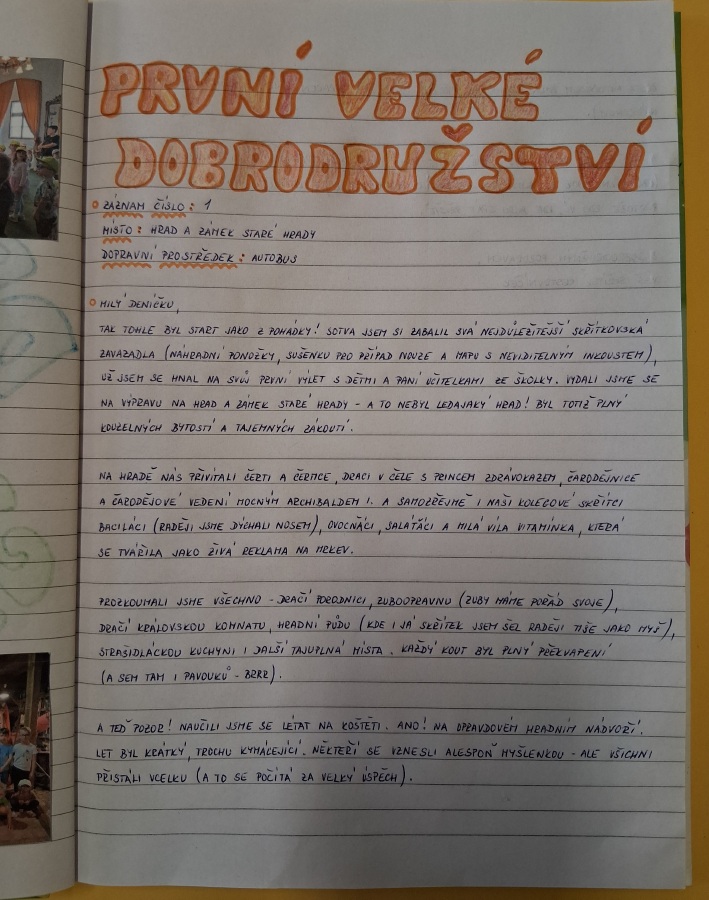 PRVNÍ VELKÉ
DOBRODRUŽSTVÍ
ZÁZNAM ČÍSLO: 1
MÍSTO: HRAD A ZÁMEK STARÉ HRADY
DOPRAVNÍ PROSTŘEDEK: AUTOBUS
MILÝ DENÍČKU,
TAK TOHLE BYL START JAKO Z POHÁDKY! SOTVA JSEM SI ZABALIL SVÁ NEJDŮLEŽITĚJŠÍ SKŘÍTKOVSKÁ
ZAVAZADLA (NÁHRADNÍ PONOŽKY, SUŠENKU PRO PŘÍPAD NOUZE A MAPU S NEVIDITELNÝM INKOUSTEM),
UŽ JSEM SE HNAL NA SVŮJ PRVNÍ VÝLET S DĚTMI A PANÍ UČITELKAMI ZE ŠKOLKY. VYDALI JSME SE
NA VÝPRAVU NA HRAD A ZÁMEK STARÉ HRADY - A TO NEBYL LEDAJAKÝ HRAD! BYL TOTIŽ PLNÝ
KOUZELNÝCH BYTOSTÍ A TAJEMNÝCH ZÁKOUTÍ.
NA HRADĚ NÁS PŘIVÍTALI ČERTI A ČERTICE, DRACI V ČELE S PRINCEM ZDRÁVOKAZEM, ČARODĚJNICE
A ČARODĚJOVÉ VEDENÍ MOCNÝM ARCHIBALDEM I. A SAMOZŘEJMĚ I NAŠI KOLEGOVÉ SKŘÍTCI
BACILÁCI (RADĚJI JSME DÝCHALI NOSEM), OVOCŇÁCI, SALÁŤÁCI A MILÁ VÍLA VITAMÍNKA, KTERÁ
SE TVÁŘILA JAKO ŽIVÁ REKLAMA NA MRKEV.
PROZKOUMALI JSME VŠECHNO - DRAČÍ PORODNICI, ZUBOOPRAVNU (ZUBY MÁME POŘÁD SVOJE),
DRAČÍ KRÁLOVSKOU KOMNATU, HRADNÍ PŮDU (KDE I JÁ SKŘÍTEK JSEM ŠEL RADĚJI TIŠE JAKO MYŠ),
STRAŠIDLÁCKOU KUCHYNI I DALŠÍ TAJUPLNÁ MÍSTA. KAŽDÝ KOUT BYL PLNÝ PŘEKVAPENÍ
(A SEM TAM I PAVOUKŮ - BRRR).
A TEĎ POZOR! NAUČILI JSME SE LÉTAT NA KOŠTĚTI. ANO! NA OPRAVDOVÉM HRADNÍM NÁDVOŘÍ.
LET BYL KRÁTKÝ, TROCHU KYMÁCEJÍCÍ. NĚKTEŘÍ SE VZNESLI ALESPOŇ MYŠLENKOU - ALE VŠICHNI
PŘISTÁLI VCELKU (A TO SE POČÍTÁ ZA VELKÝ ÚSPĚCH).